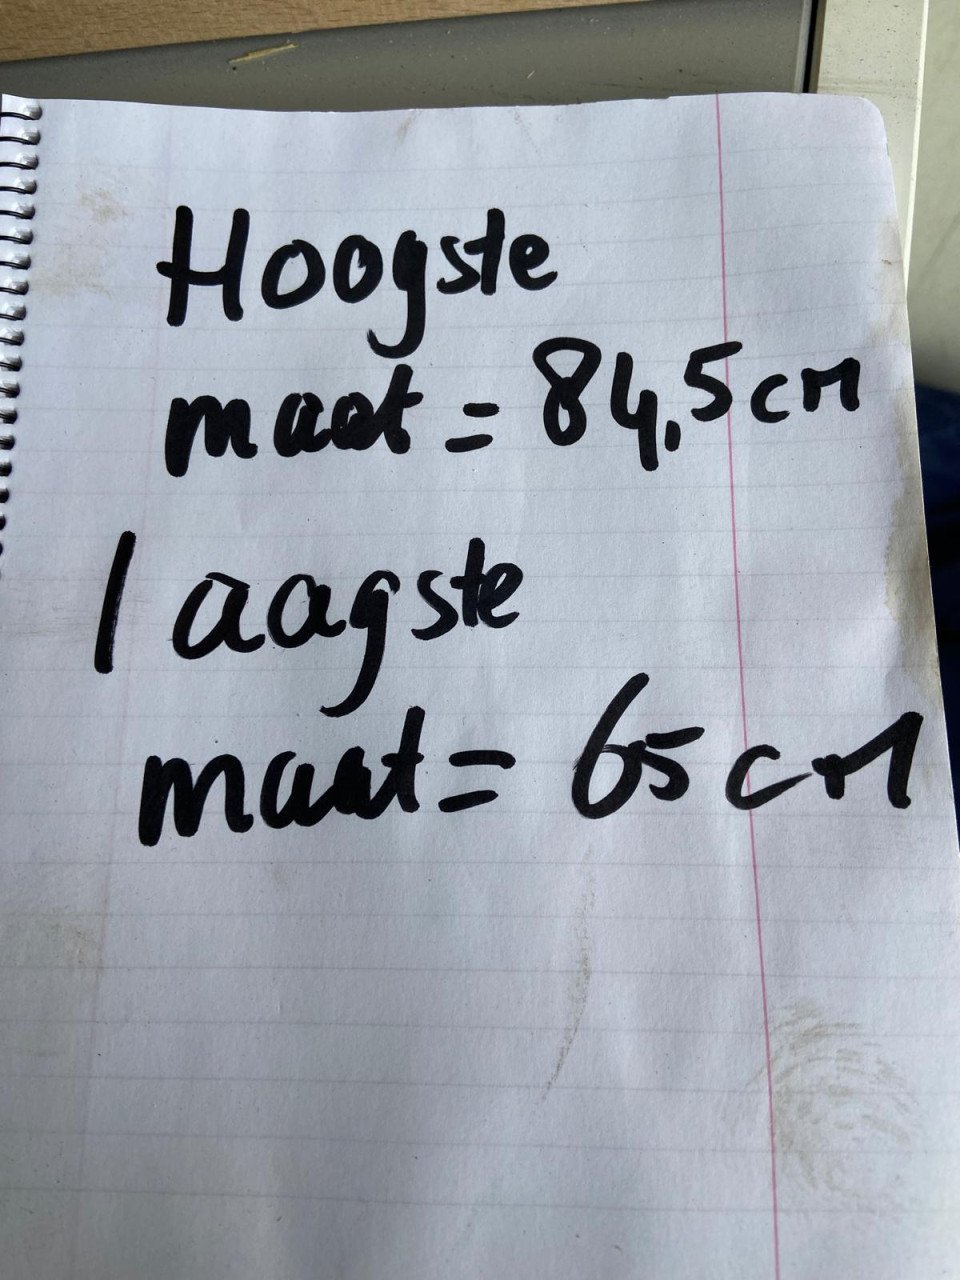 Hoogste
maat = 84,5 cm
laagste
maat = 65 cm